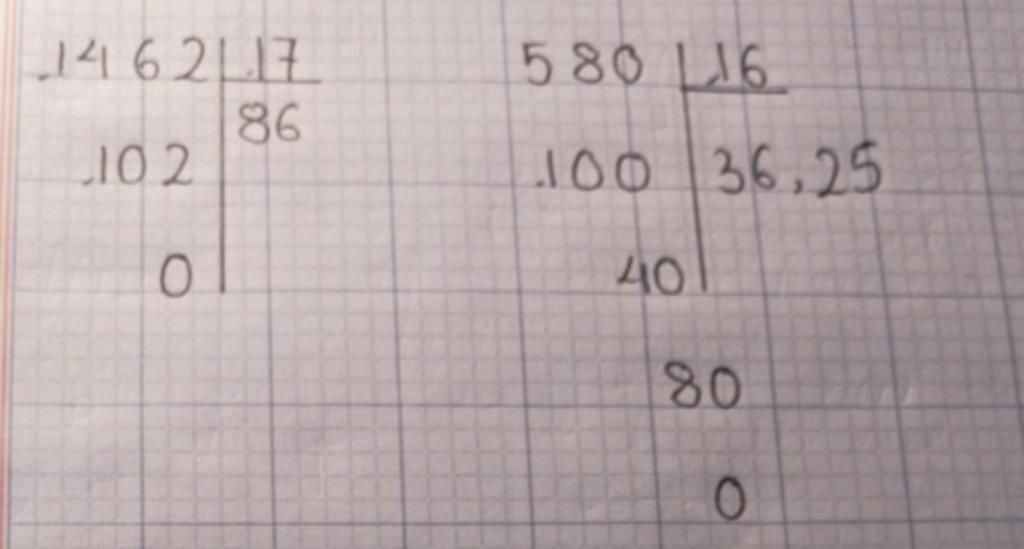 1462 17
86
102
0
580 16
100 36,25
40
80
0